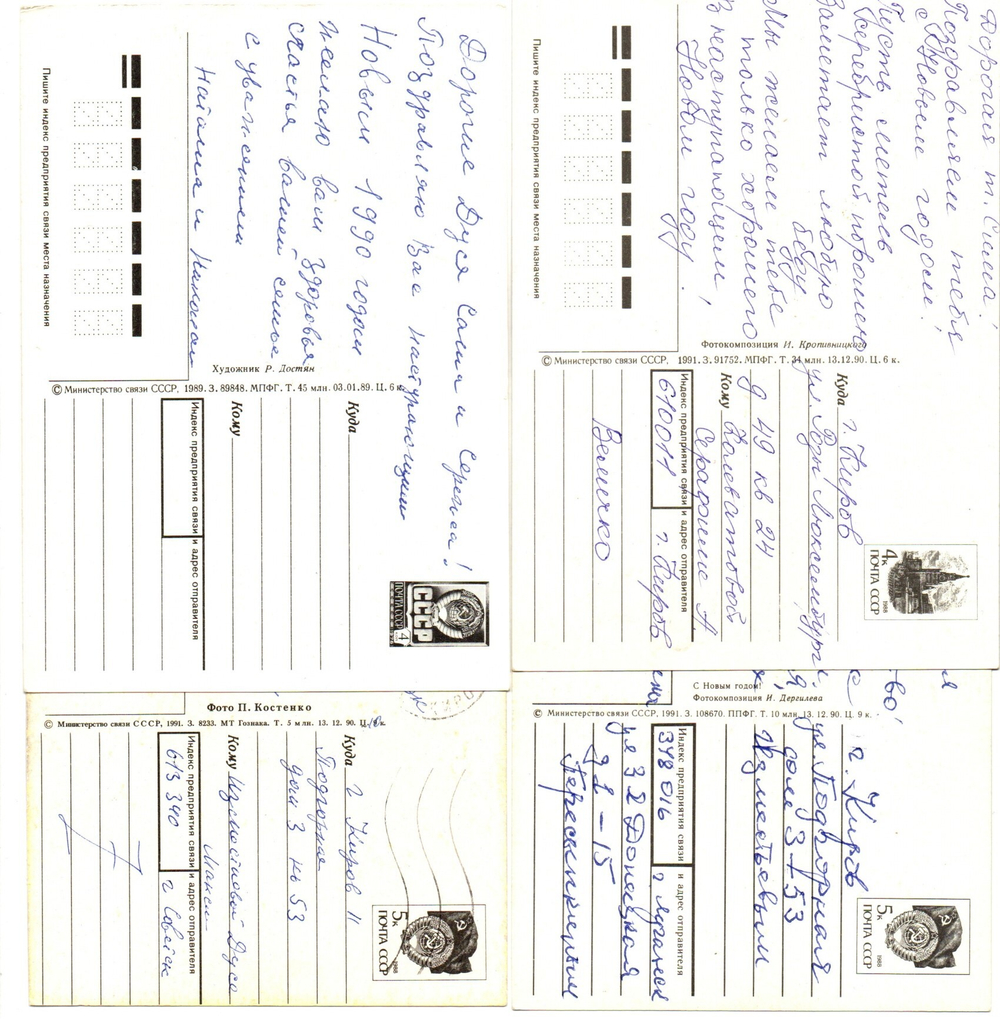 Дорогие Дуся Саша и Сережа!
Поздравляю Вас наступающим
Новым 1990 годом
желаю вам здоровья
счастья вашей семье
с уважением
Наташа и
Пишите индекс предприятия связи места назначения
Художник Р. Достян
© Министерство связи СССР, 1989. З. 89848. МПФГ. Т. 45 млн. 03.01.89. Ц. 6 к.
Куда
Кому
Индекс предприятия связи и адрес отправителя
ПОЧТА СССР
4
СССР
Дорогая т. Сима!
Поздравляем тебя
с Новым годом!
Пусть метель
серебристой порошею
Заметает любую
беду
Мы желаем тебе
только хорошего
В наступающем
Новом году!
Пишите индекс предприятия связи места назначения
Фотокомпозиция И. Кропивницкого
© Министерство связи СССР, 1991. З. 91752. МПФГ. Т. 34 млн. 13.12.90. Ц. 6 к.
4к
ПОЧТА СССР
1988
Куда г. Киров
ул. Розы Люксембург
д 49 кв 24
Кому Колеватовой
Серафиме А
Индекс предприятия связи и адрес отправителя
610011 г. Киров
Величко
Фото П. Костенко
© Министерство связи СССР, 1991. З. 8233. МТ Гознака. Т. 5 млн. 13. 12. 90. Ц.
5к
ПОЧТА СССР
1988
Куда г Киров 11
Подгорная
дом 3 кв 53
Кому Изместьевой Дусе
Индекс предприятия связи и адрес отправителя
613340 г Советск
С Новым годом!
Фотокомпозиция И. Дергилева
© Министерство связи СССР, 1991. З. 108670. ППФГ. Т. 10 млн. 13. 12. 90. Ц. 9 к.
5к
ПОЧТА СССР
1988
г. Киров
ул. Подгорная
дом 3-53
Изместьевым
Индекс предприятия связи и адрес отправителя
348016 г Луганск
ул 3я Донецкая
Пересыпкины